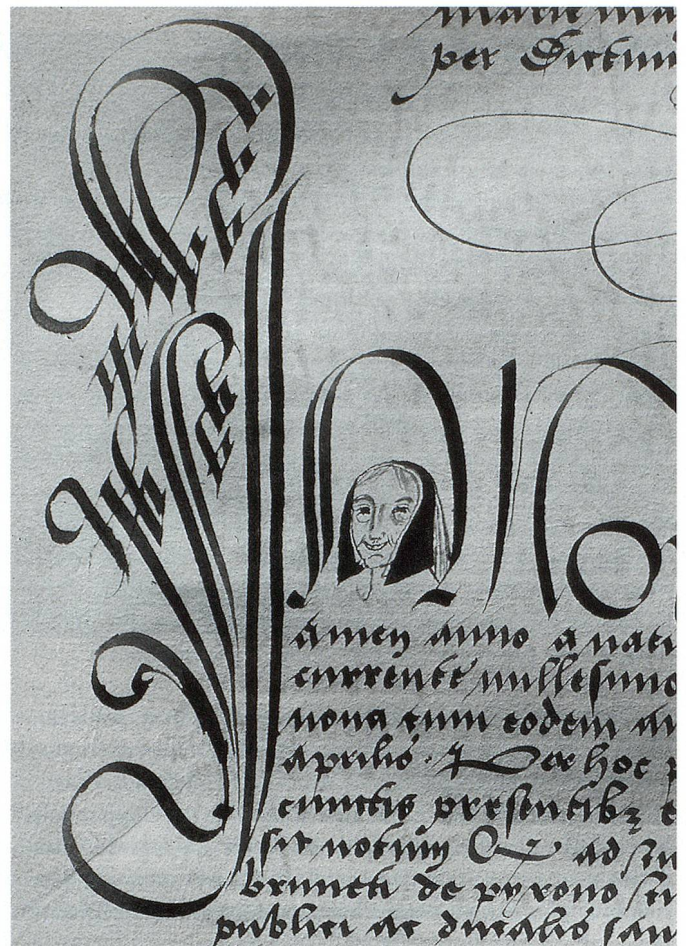 marie ma
per dictum
In no
amen anno a nati
currente millesimo
nona cum eodem an
aprilis. Per hoc p
cunctis presentibz e
sit notum Q ad
bruneti de pyrono
publici ac ducalis